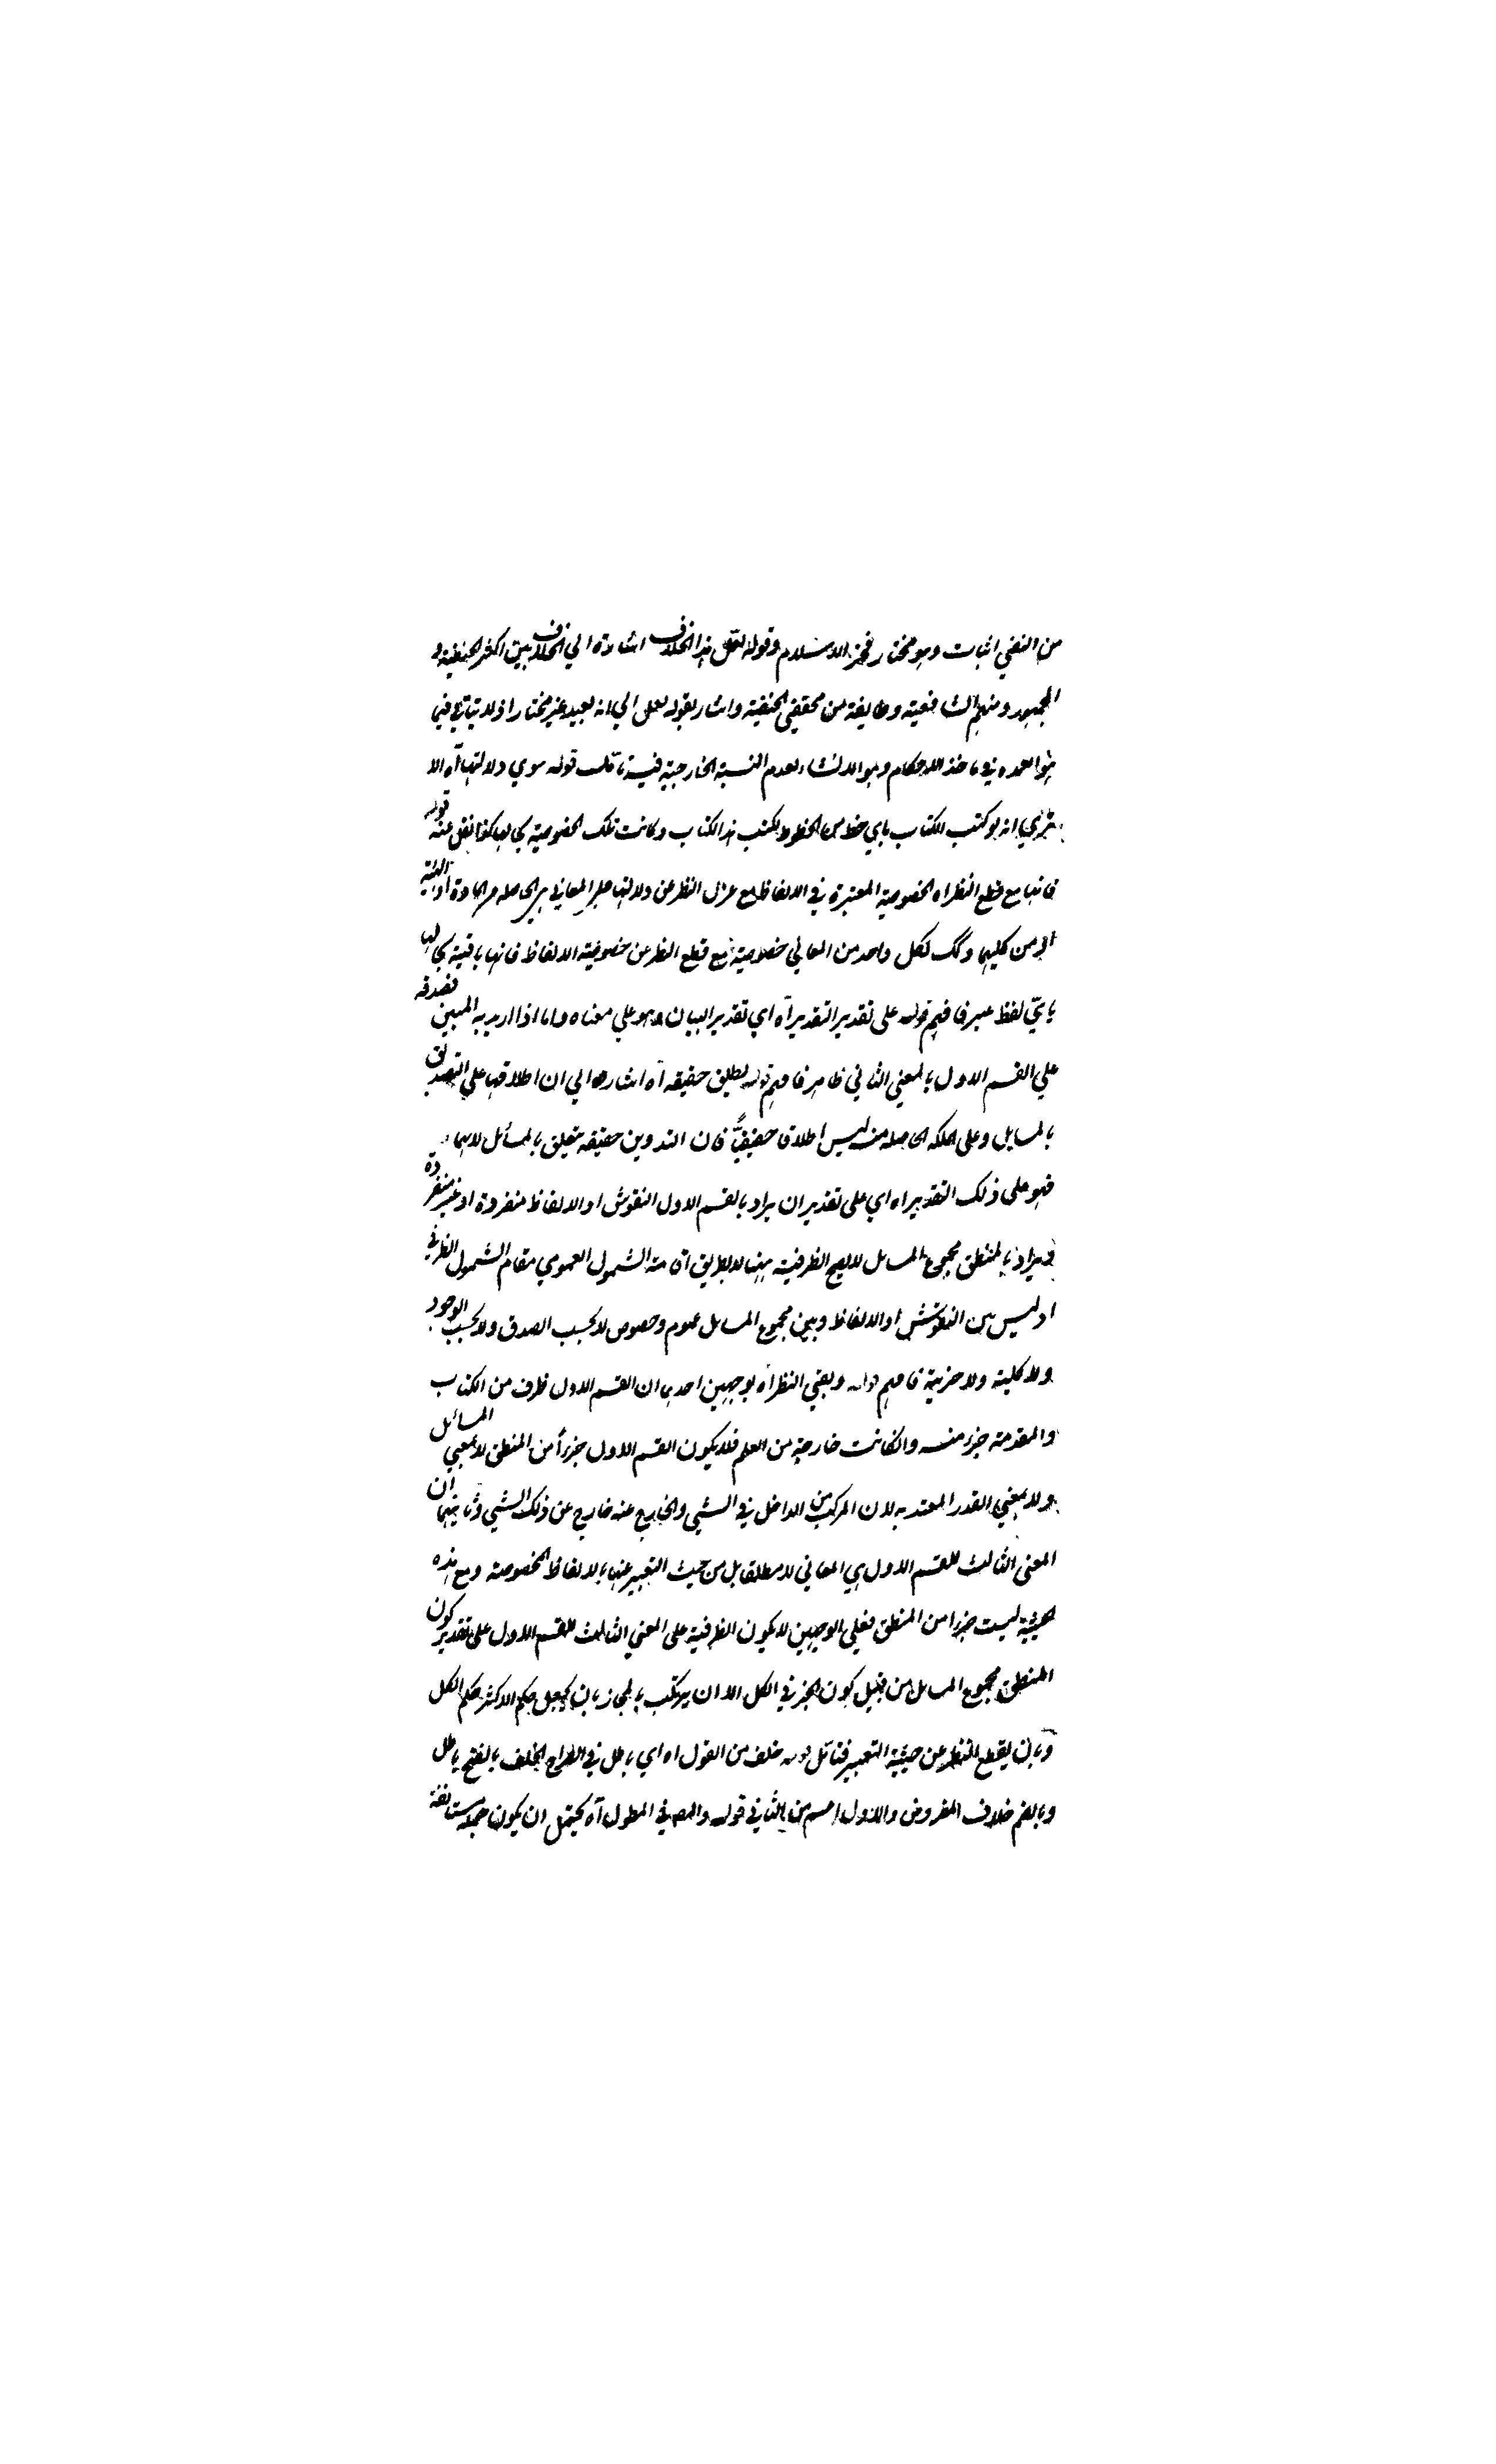 من النفي اثبات وهو مختار فخر الاسلام وقوله لعل هذا الخلاف اشارة الي الخلاف بين اكثر الحنفية و
الجمهور ومنهم الشافعية وطايفة من محققي الحنفية واشار بقوله لعل الي انه بعيد غير مختار اذ لا يتاتي فيما
هو العمدة في ماخذ الاحكام وهو الانشاء لعدم النسبة الخارجية فيه قوله سوي دلالتها آه الا
تري انه لو كتب الكتاب باي خط من الخطوط لكتب هذا الكتاب وكانت تلك الخصوصية بحالها كذا نقل عنه قوله
فانها مع قطع النظر اه الخصوصية المعتبرة في الالفاظ مع عزل النظر عن دلالتها علي المعاني هي الحاصلة من المادة او الهيئة
او من كليهما وكك لكل واحد من المعاني خصوصية مع قطع النظر عن خصوصية الالفاظ فانها باقية بحالها
باي لفظ عبر فافهم قوله علي تقدير التقدير آه اي تقدير البيان وهو علي معناه واما اذا اريد به المبين فصدقه
علي القسم الاول بالمعني الثاني ظاهر فافهم قوله يطلق حقيقة آه اشارة الي ان اطلاقها علي التصديق
بالمسايل وعلي الملكة الحاصلة منه ليس اطلاقا حقيقيا فان التدوين حقيقة يتعلق بالمسائل لا بهما
فهو علي ذلك التقدير اه اي علي تقدير ان يراد بالقسم الاول النقوش او الالفاظ منفردة او غير منفردة
ويراد بالمنطق مجموع المسايل لا يصح الظرفية بينهما لا بطريق اقامة الشمول العمومي مقام الشمول الظرفي
اذ ليس بين النقوش او الالفاظ وبين مجموع المسايل عموم وخصوص لا بحسب الصدق ولا بحسب الوجود
ولا كلية ولا جزئية فافهم قوله وبقي النظر آه بوجهين احدهما ان القسم الاول ظرف من الكتاب
والمقدمة جزء منه وان كانت خارجة من العلم فلا يكون القسم الاول جزءاً من المنطق لا بمعني المسائل
ولا بمعني القدر المعتد به لان المركب من الداخل في الشيي والخارج عنه خارج عن ذلك الشيي وثانيهما ان
المعني الثالث للقسم الاول هي المعاني لا مطلقا بل من حيث التعبير عنها بالالفاظ المخصوصة ومع هذه
الحيثية ليست جزءا من المنطق فعلي الوجهين لا يكون الظرفية علي المعني الثالث للقسم الاول علي تقدير كون
المنطق مجموع المسايل من قبيل كون الجزء في الكل الا ان يرتكب بالمجاز بان يجعل حكم الاكثر حكم الكل
وبان يقطع النظر عن حيثية التعبير فتامل قوله خلف من القول اه اي باطل في الصراح الخلف بالفتح باطل
وبالضم خلاف المفروض والاول من الثاني قوله والمص في المطول آه يحتمل ان يكون جملة مستانفة